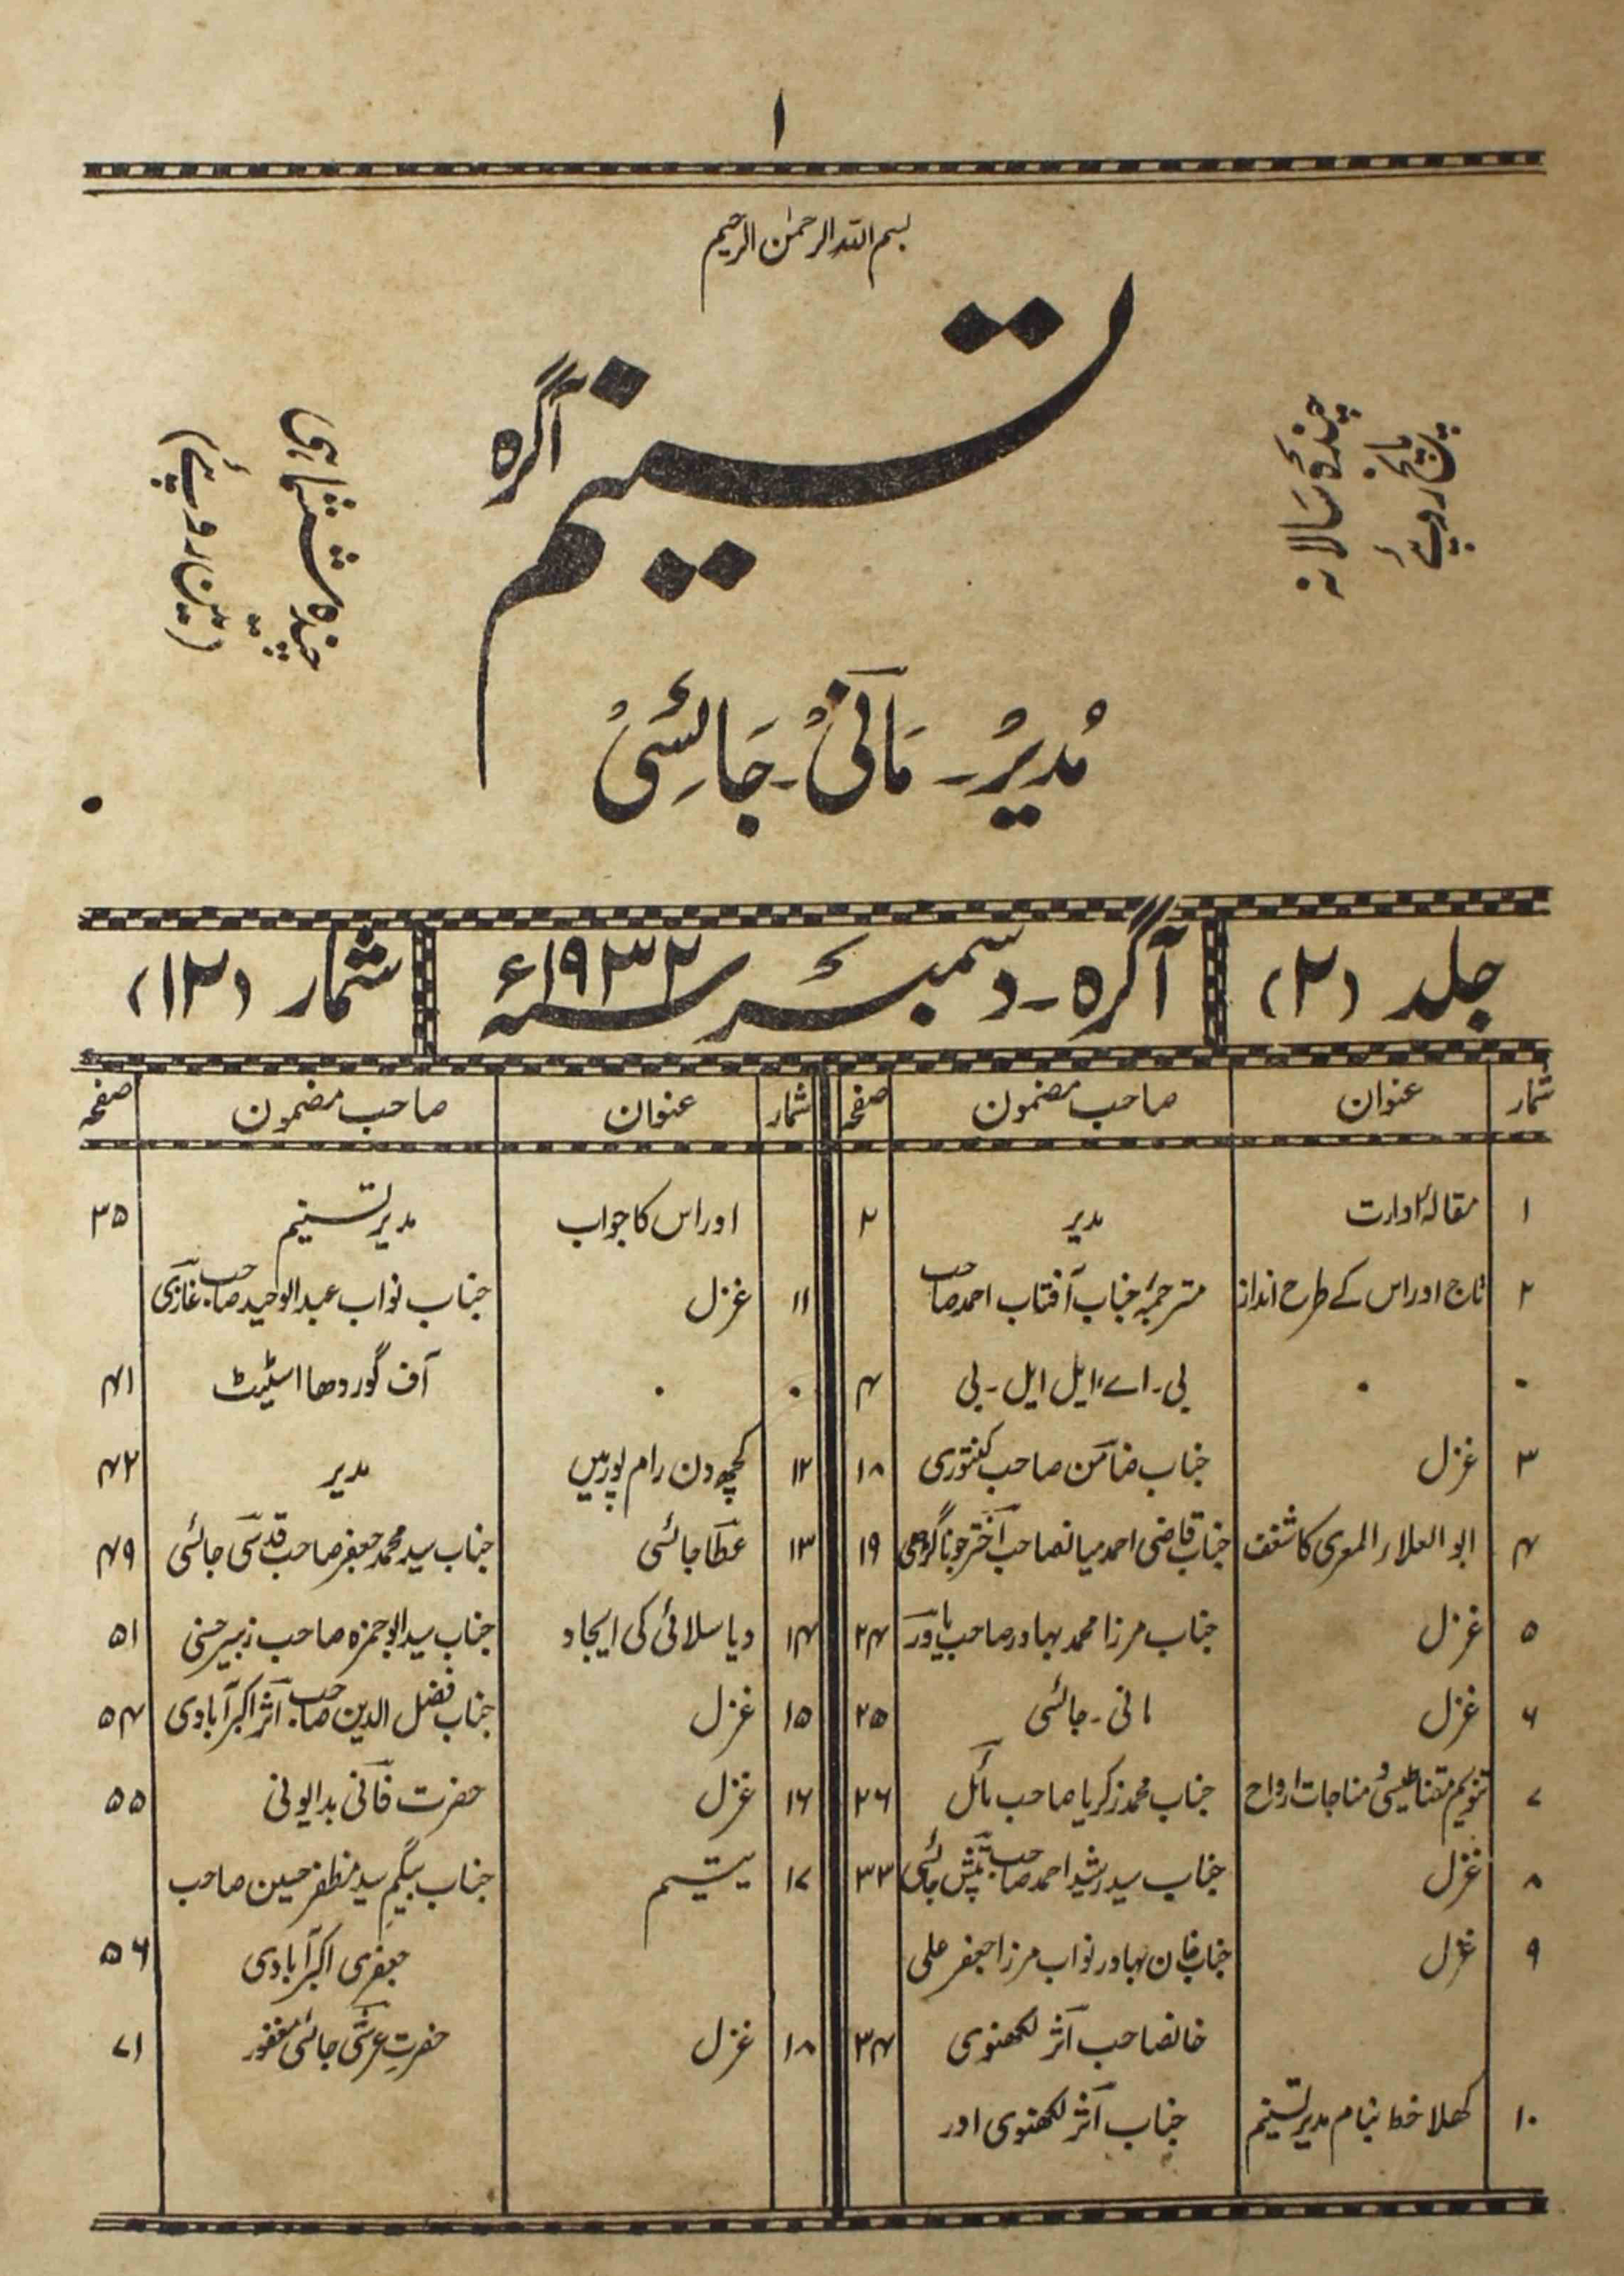 ۱
بسم اللہ الرحمٰن الرحیم
تسنیم
آگرہ
چندہ سالانہ
پانچ روپئے
چندہ ششماہی
(تین روپئے)
مُدیرُ ـ مَانیْ ـ جَائِسیْ
جلد (۲) آگرہ ـ دسمبر سنہ ۱۹۳۲ء شمار (۱۲)
شمار عنوان صاحب مضمون صفحہ شمار عنوان صاحب مضمون صفحہ
۱ مقالۂ ادارت مدیر ۲
۲ تاج اور اس کے طرح انداز مترجمۂ جناب آفتاب احمد صاحب
۰ ۰ بی ـ اے، ایل ایل ـ بی ۴
۳ غزل جناب ضامن صاحب کنتوری ۱۸
۴ ابو العلاء المعری کا شغف جناب قاضی احمد میانصاحب اختر جوناگڑھی ۱۹
۵ غزل جناب مرزا محمد بہادر صاحب یاور ۲۴
۶ غزل مانی ـ جائسی ۲۵
۷ تنویم مقناطیسی و مناجات ارواح جناب محمد زکریا صاحب مائل ۲۶
۸ غزل جناب سید رشید احمد صاحب تپش جائسی ۳۳
۹ غزل جناب خان بہادر نواب مرزا جعفر علی
خانصاحب آثر لکھنوی ۳۴
۱۰ کھلا خط بنام مدیر تسنیم جناب آثر لکھنوی اور
اور اس کا جواب مدیر تسنیم ۳۵
۱۱ غزل جناب نواب عبد الوحید صاحب غازی
۰ ۰ آف گوردھا اسٹیٹ ۴۱
۱۲ کچھ دن رام پور میں مدیر ۴۲
۱۳ عطا جائسی جناب سید محمد جعفر صاحب قدسی جائسی ۴۹
۱۴ دیا سلائی کی ایجاد جناب سید ابو حمزہ صاحب زبیر حسنی ۵۱
۱۵ غزل جناب فضل الدین صاحب آثر اکبر آبادی ۵۴
۱۶ غزل حضرت فانی بدایونی ۵۵
۱۷ یتیم جناب بیگم سید مظفر حسین صاحب
جعفری اکبر آبادی ۵۶
۱۸ غزل حضرت عرشی جائسی مغفور ۷۱